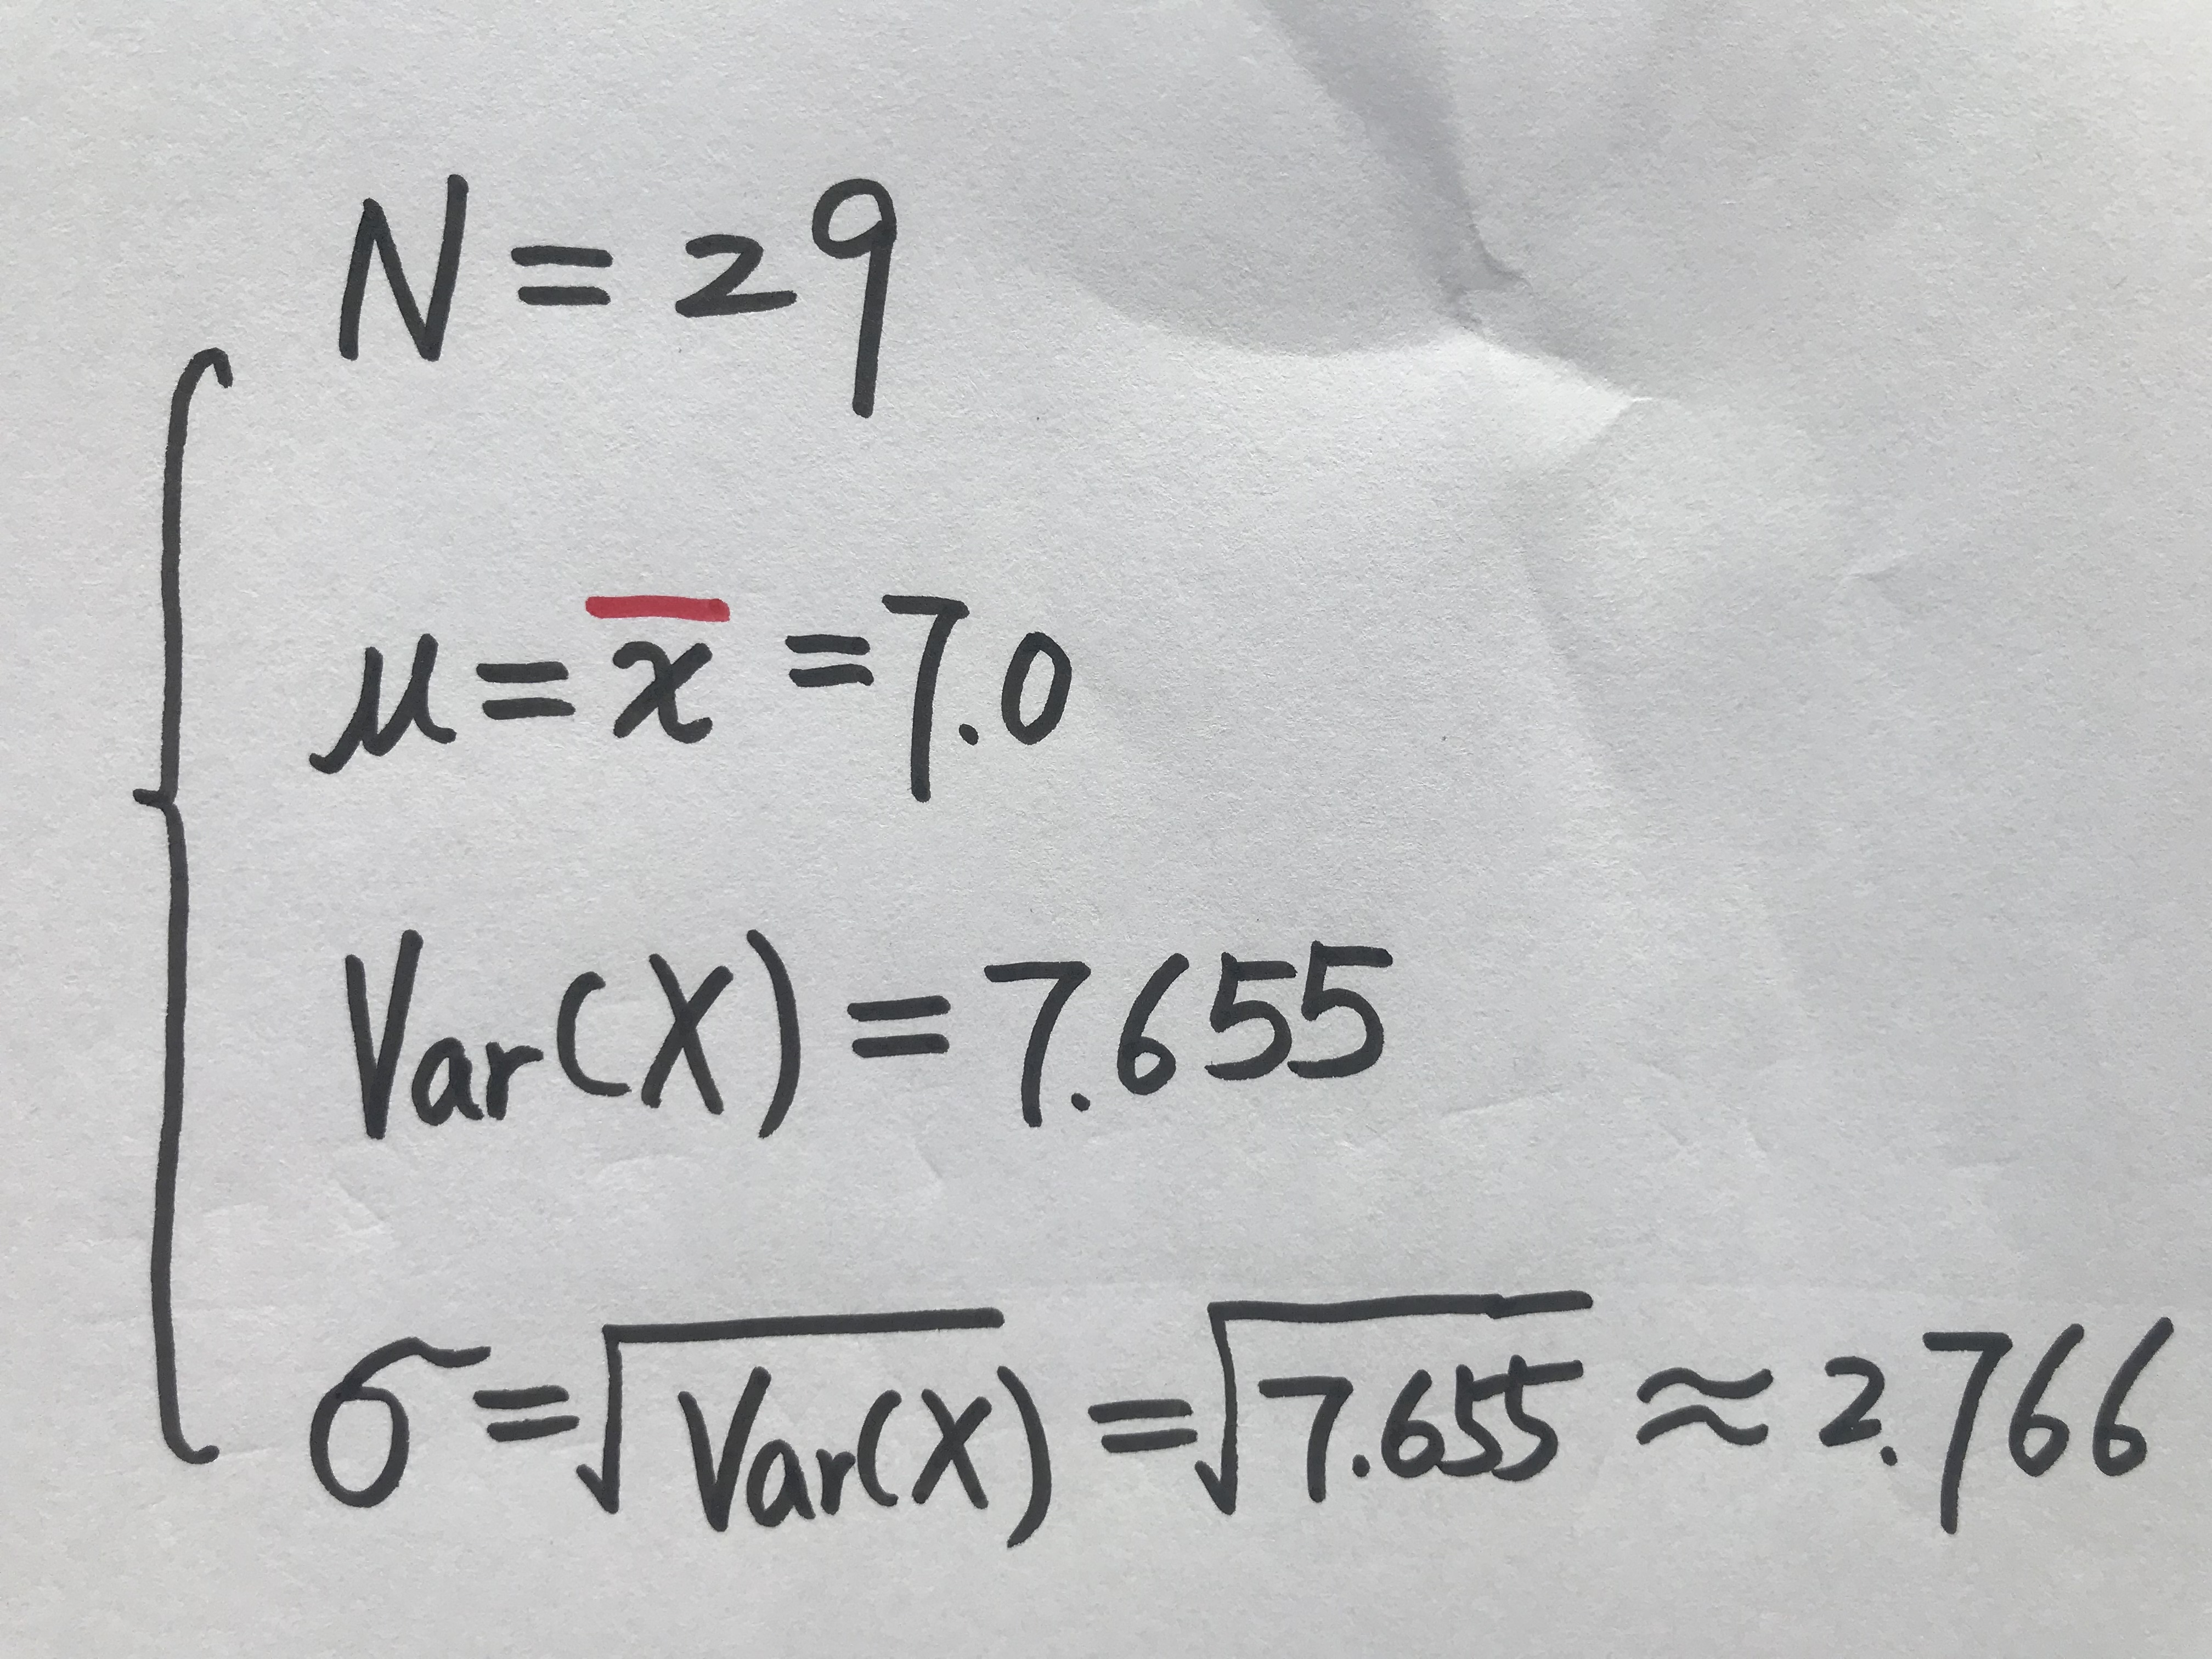 N = 29
μ = x̅ = 7.0
Var(X) = 7.655
σ = √Var(X) = √7.655 ≈ 2.766